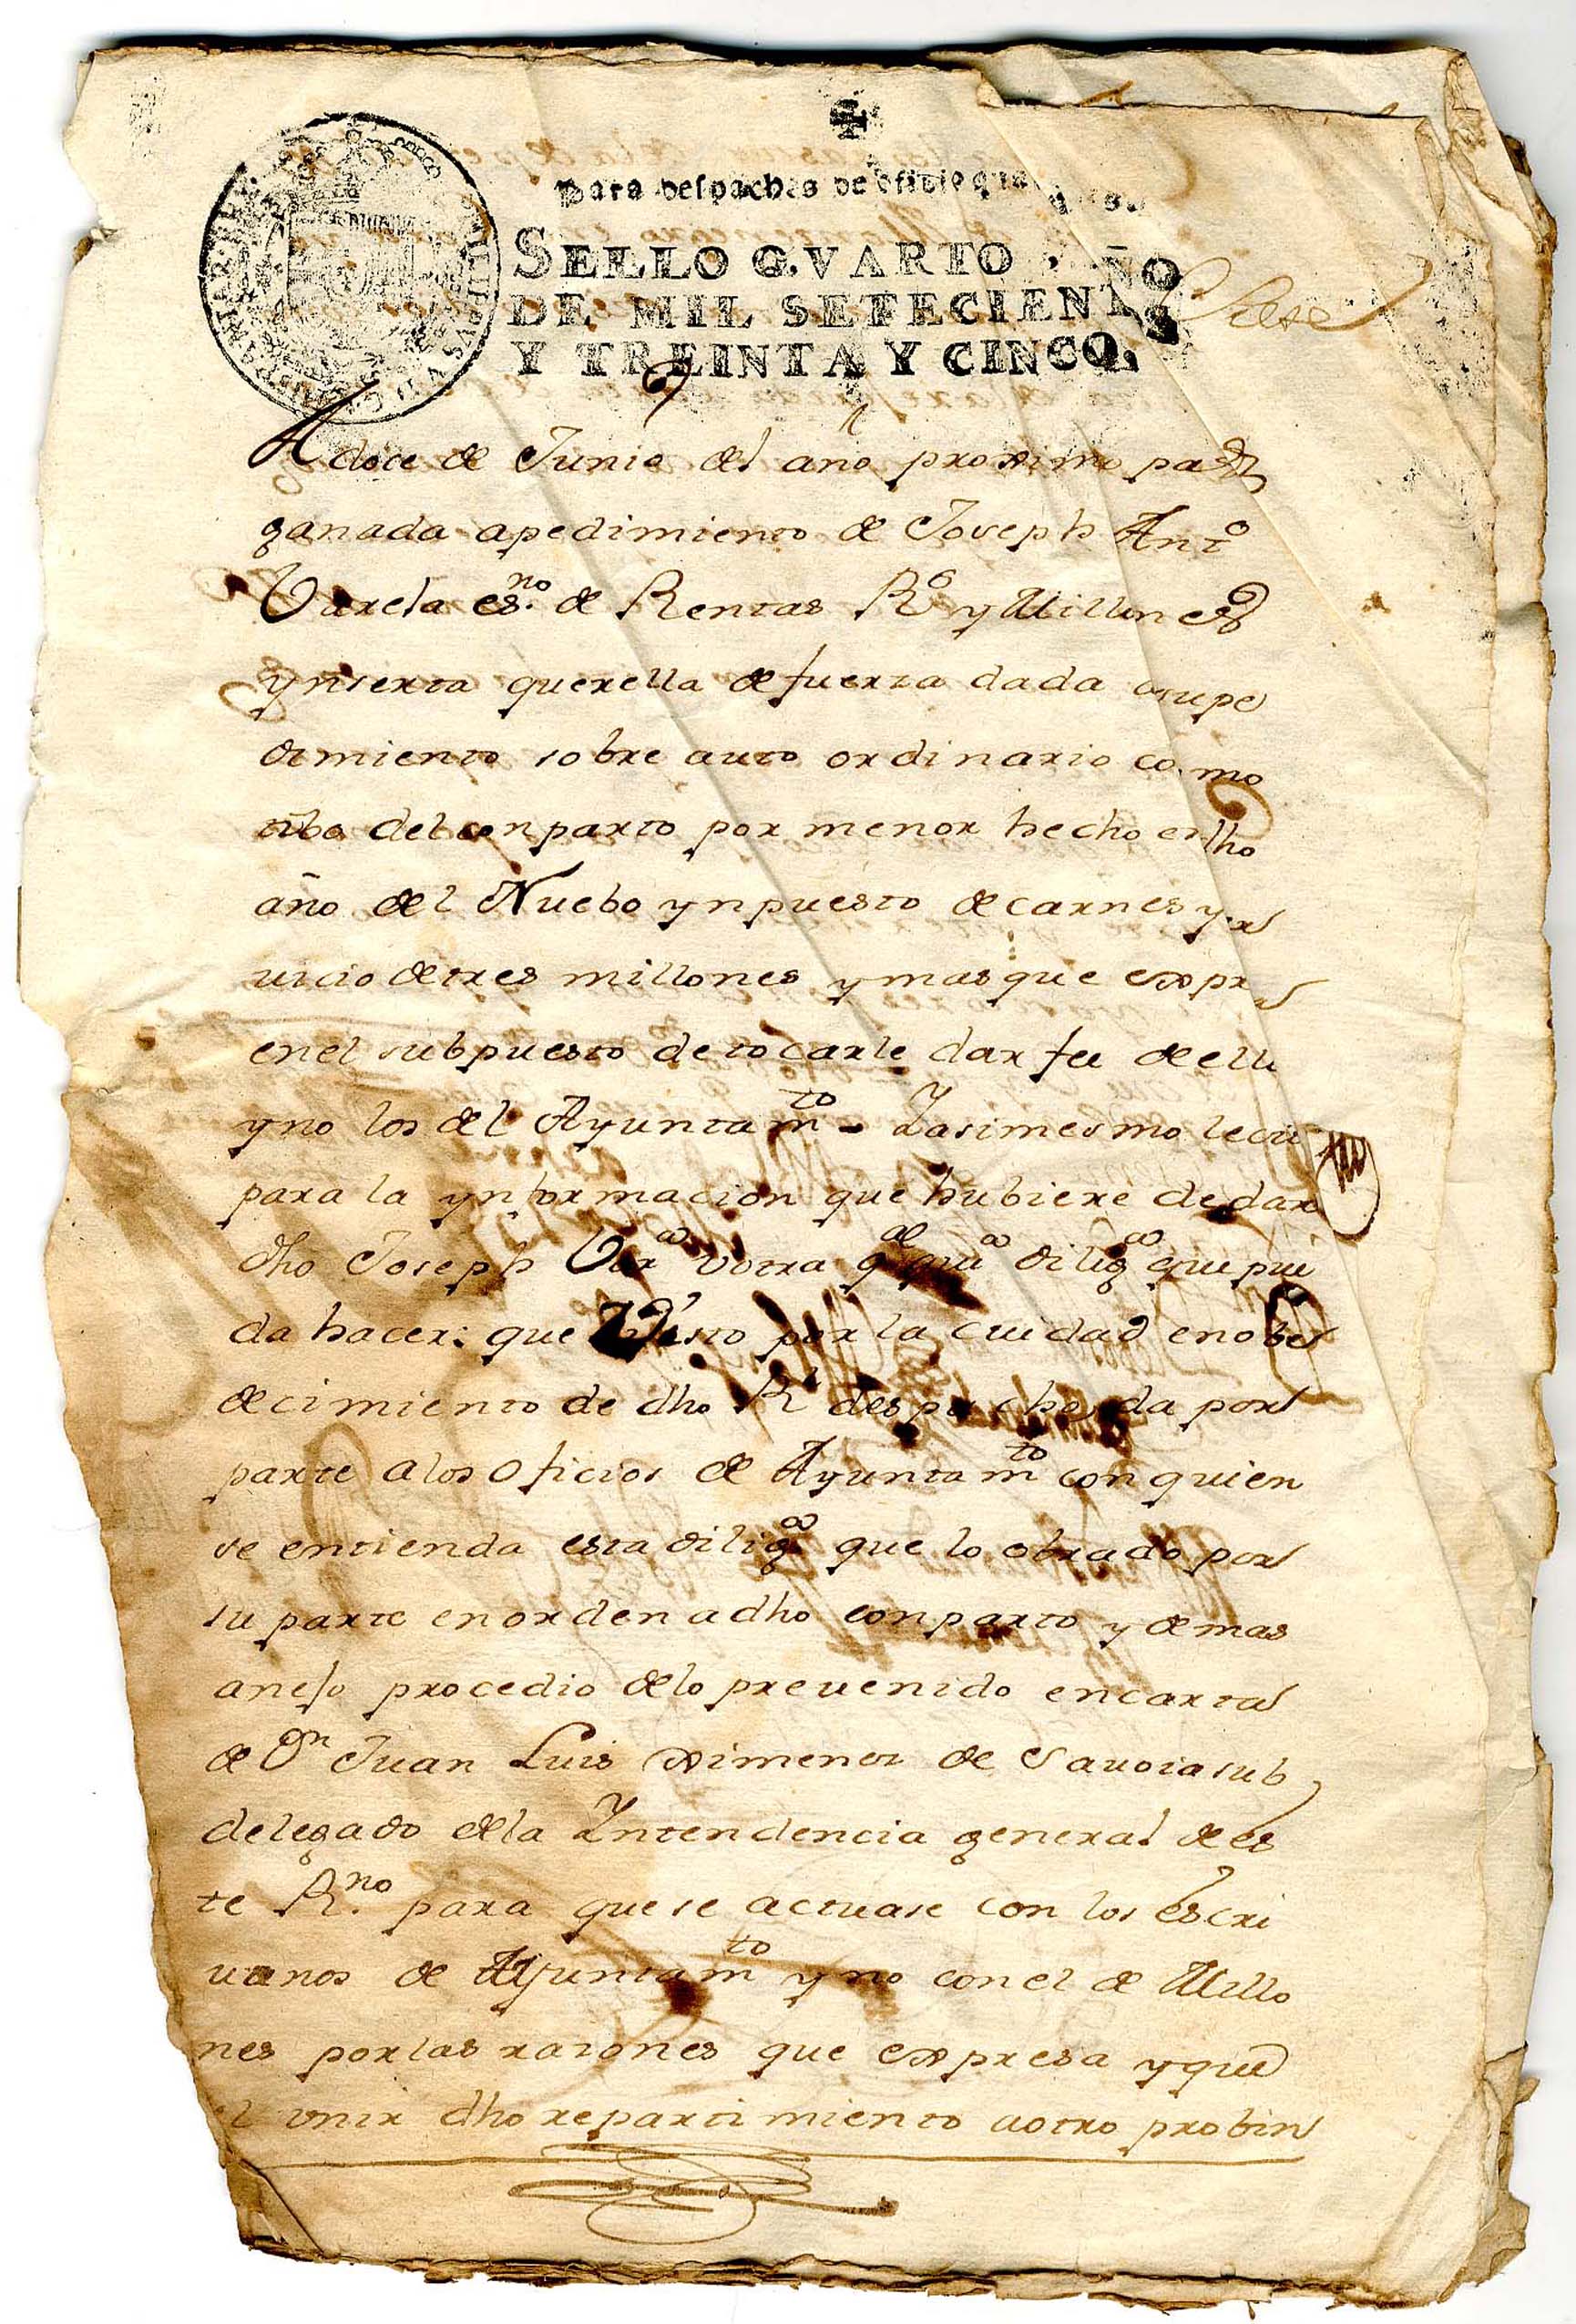 Para despachos de oficio qua
SELLO QVARTO, AÑO
DE MIL SETECIENTOS
Y TREINTA Y CINCO.
A doce de Junio del año proximo pasdo
ganada apedimiento de Joseph Anto
Varela esno. de Rentas Rs y Millones
ynserta querella de fuerza dada asupe
dimiento sobre auto ordinario como
tibo del conparto por menor hecho en dho
año del Nuebo ynpuesto de carnes y ser
uicio de tres millones y mas que expresa
enel subpuesto de tocarle dar fee de ello
y no los del Ayuntamto - Yasimesmo le
para la ynformacion que hubiere de dar
dho Joseph Vara votra qal qua diliga que pue
da hacer: que visto por la ciudad en obe
decimiento de dho Rl despacho, da por
parte a los oficios de Ayuntamto con quien
se entienda esta diliga que lo obrado por
su parte en orden a dho conparto y demas
anejo procedio de lo preuenido en cartas
de Dn Juan Luis Ximenez de Sauoia sub
delegado de la Intendencia general de es
te Rno. para que se actuase con los escri
uanos de Ayuntamto y no con el de Millo
nes por las razones que expresa y que
el vnir dho repartimiento aotro probin